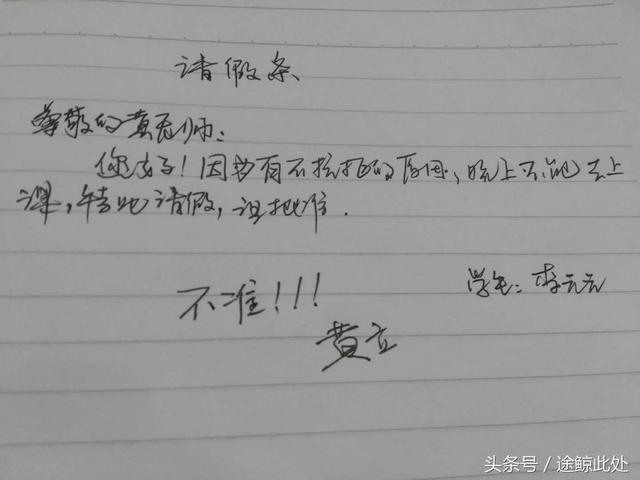 请假条
尊敬的黄老师：
您好！因为有不抗拒的原因，晚上不能去上
课，特此请假，望批准.
学生：李云云
不准！！！
黄立
头条号／途鲸此处